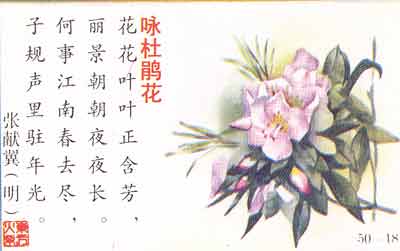 咏杜鹃花
花花叶叶正含芳，
丽景朝朝夜夜长。
何事江南春去尽，
子规声里驻年光。
张献翼（明）
50—18